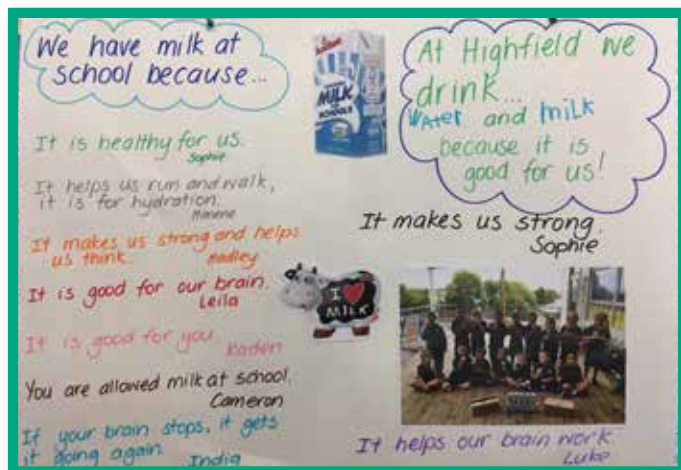 We have milk at
school because...
It is healthy for us.
Sophie
It helps us run and walk,
it is for hydration.
It makes us strong and helps
us think. Madley
It is good for our brain.
Leila
It is good for you. Kaden
You are allowed milk at school.
Cameron
If your brain stops, it gets
it going again. India
MILK
SCHOOLS
I
MILK
At Highfield we
drink...
Water and milk
because it is
good for us!
It makes us strong.
Sophie
It helps our brain work
Luke